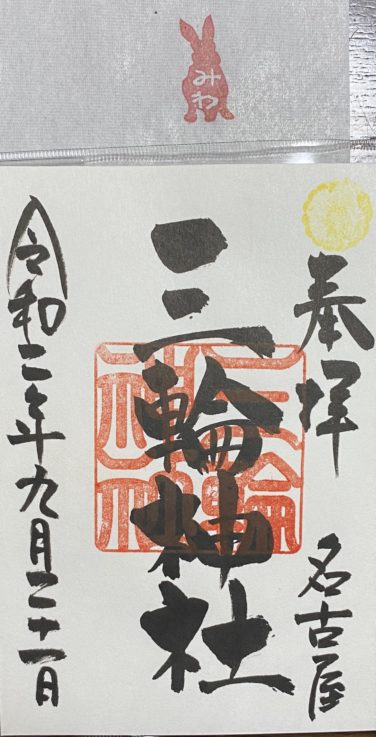 みわ
奉拝 名古屋
三輪神社
三輪神社
令和二年九月二十一日